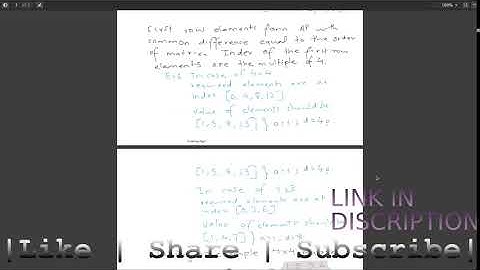 First row elements form AP with
common difference equal to the order
of matrices Index of the first row
elements are the multiple of 4.
Ex:1 In case of 4×4
required elements are at
index [0,4,8,12]
value of elements should be
[1,5,9,13] } a=1, d=4
[1,5,9,13] } a=1, d=4
In case of 3×3
required elements are at
index [0,3,6]
value of elements should
[1,4,7] } a=1, d=3
LINK IN
DISCRIPTION
|Like | Share | Subscribe|